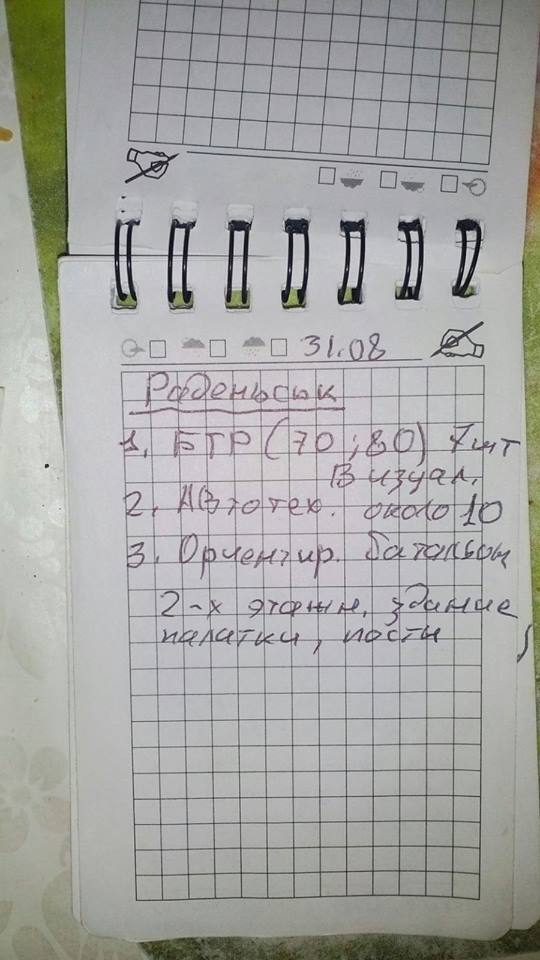 31.08
Раденьськ
1. БТР (70; 80) 7 шт
Визуал.
2. Автотех. около 10
3. Ориентир. батальон
2-х этажн. здание
палатки, посты